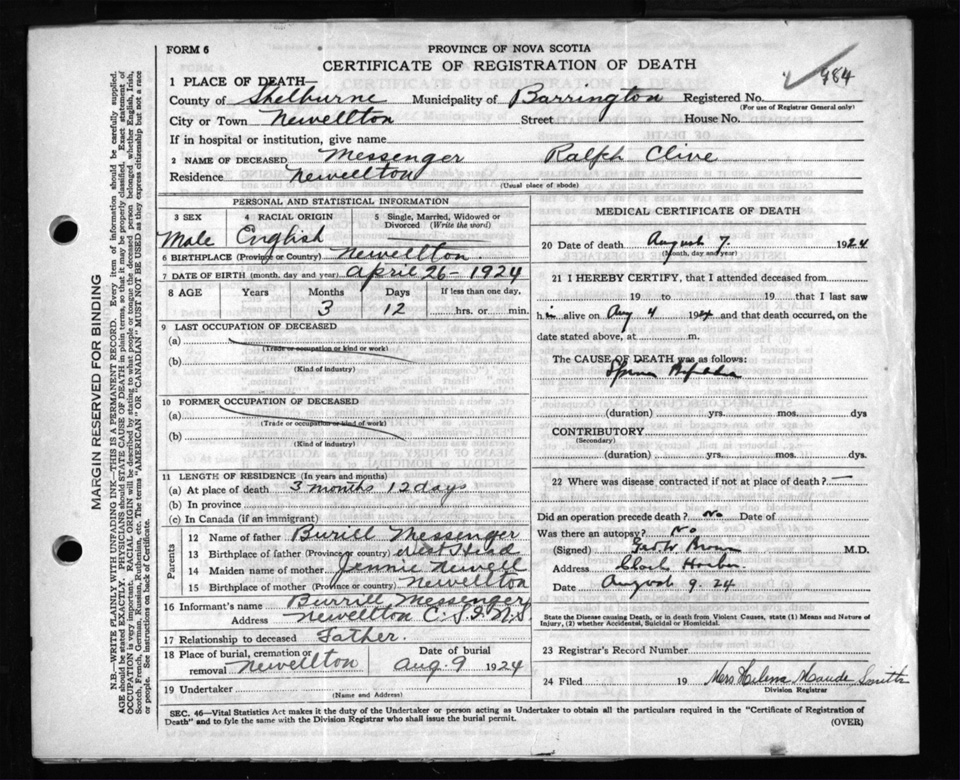 FORM 6
PROVINCE OF NOVA SCOTIA
CERTIFICATE OF REGISTRATION OF DEATH
984
1 PLACE OF DEATH—
County of Shelburne Municipality of Barrington Registered No.
(For use of Registrar General only)
City or Town Newellton Street House No.
If in hospital or institution, give name
2 NAME OF DECEASED Messenger Ralph Clive
Residence Newellton
(Usual place of abode)
PERSONAL AND STATISTICAL INFORMATION
3 SEX 4 RACIAL ORIGIN 5 Single, Married, Widowed or Divorced (Write the word)
Male English
6 BIRTHPLACE (Province or Country) Newellton
7 DATE OF BIRTH (month, day and year) April 26 - 1924
8 AGE Years Months Days If less than one day,
3 12 hrs. or min.
9 LAST OCCUPATION OF DECEASED
(a)
(Trade or occupation or kind or work)
(b)
(Kind of industry)
10 FORMER OCCUPATION OF DECEASED
(a)
(Trade or occupation or kind of work)
(b)
(Kind of industry)
11 LENGTH OF RESIDENCE (In years and months)
(a) At place of death 3 months 12 days
(b) In province
(c) In Canada (if an immigrant)
Parents
12 Name of father Burill Messenger
13 Birthplace of father (Province or country) West Head
14 Maiden name of mother Jennie Newell
15 Birthplace of mother (Province or country) Newellton
16 Informant's name Burrill Messenger
Address Newellton C. S. I. N. S
17 Relationship to deceased Father.
18 Place of burial, cremation or removal Newellton Date of burial Aug. 9 1924
19 Undertaker
(Name and Address)
MEDICAL CERTIFICATE OF DEATH
20 Date of death August 7. 1924
(Month, day and year)
21 I HEREBY CERTIFY, that I attended deceased from
19 to 19 that I last saw
him alive on Aug 4 1924 and that death occurred, on the
date stated above, at m.
The CAUSE OF DEATH was as follows:
Spina Bifida
(duration) yrs. mos. dys
CONTRIBUTORY
(Secondary)
(duration) yrs. mos. dys.
22 Where was disease contracted if not at place of death? —
Did an operation precede death? No Date of
Was there an autopsy? No
(Signed) Brown M.D.
Address Clark Harbor
Date August 9. 24
State the Disease causing Death, or in death from Violent Causes, state (1) Means and Nature of Injury, (2) whether Accidental, Suicidal or Homicidal.
23 Registrar's Record Number
24 Filed 19 Mrs Helena Maude Smith
Division Registrar
SEC. 46—Vital Statistics Act makes it the duty of the Undertaker or person acting as Undertaker to obtain all the particulars required in the "Certificate of Registration of
Death" and to fyle the same with the Division Registrar who shall issue the burial permit.
(OVER)
MARGIN RESERVED FOR BINDING
N.B.—WRITE PLAINLY WITH UNFADING INK—THIS IS A PERMANENT RECORD. Every item of information should be carefully supplied.
AGE should be stated EXACTLY. PHYSICIANS should STATE CAUSE OF DEATH in plain terms, so that it may be properly classified. Exact statement of
OCCUPATION is very important. RACIAL ORIGIN will be described by stating to what people or tongue the deceased person belonged whether English, Irish,
Scotch, French, German, Russian, Ruthenian, etc. The terms "AMERICAN" OR "CANADIAN" MUST NOT BE USED as they express citizenship but not a race
or people. See instructions on back of Certificate.